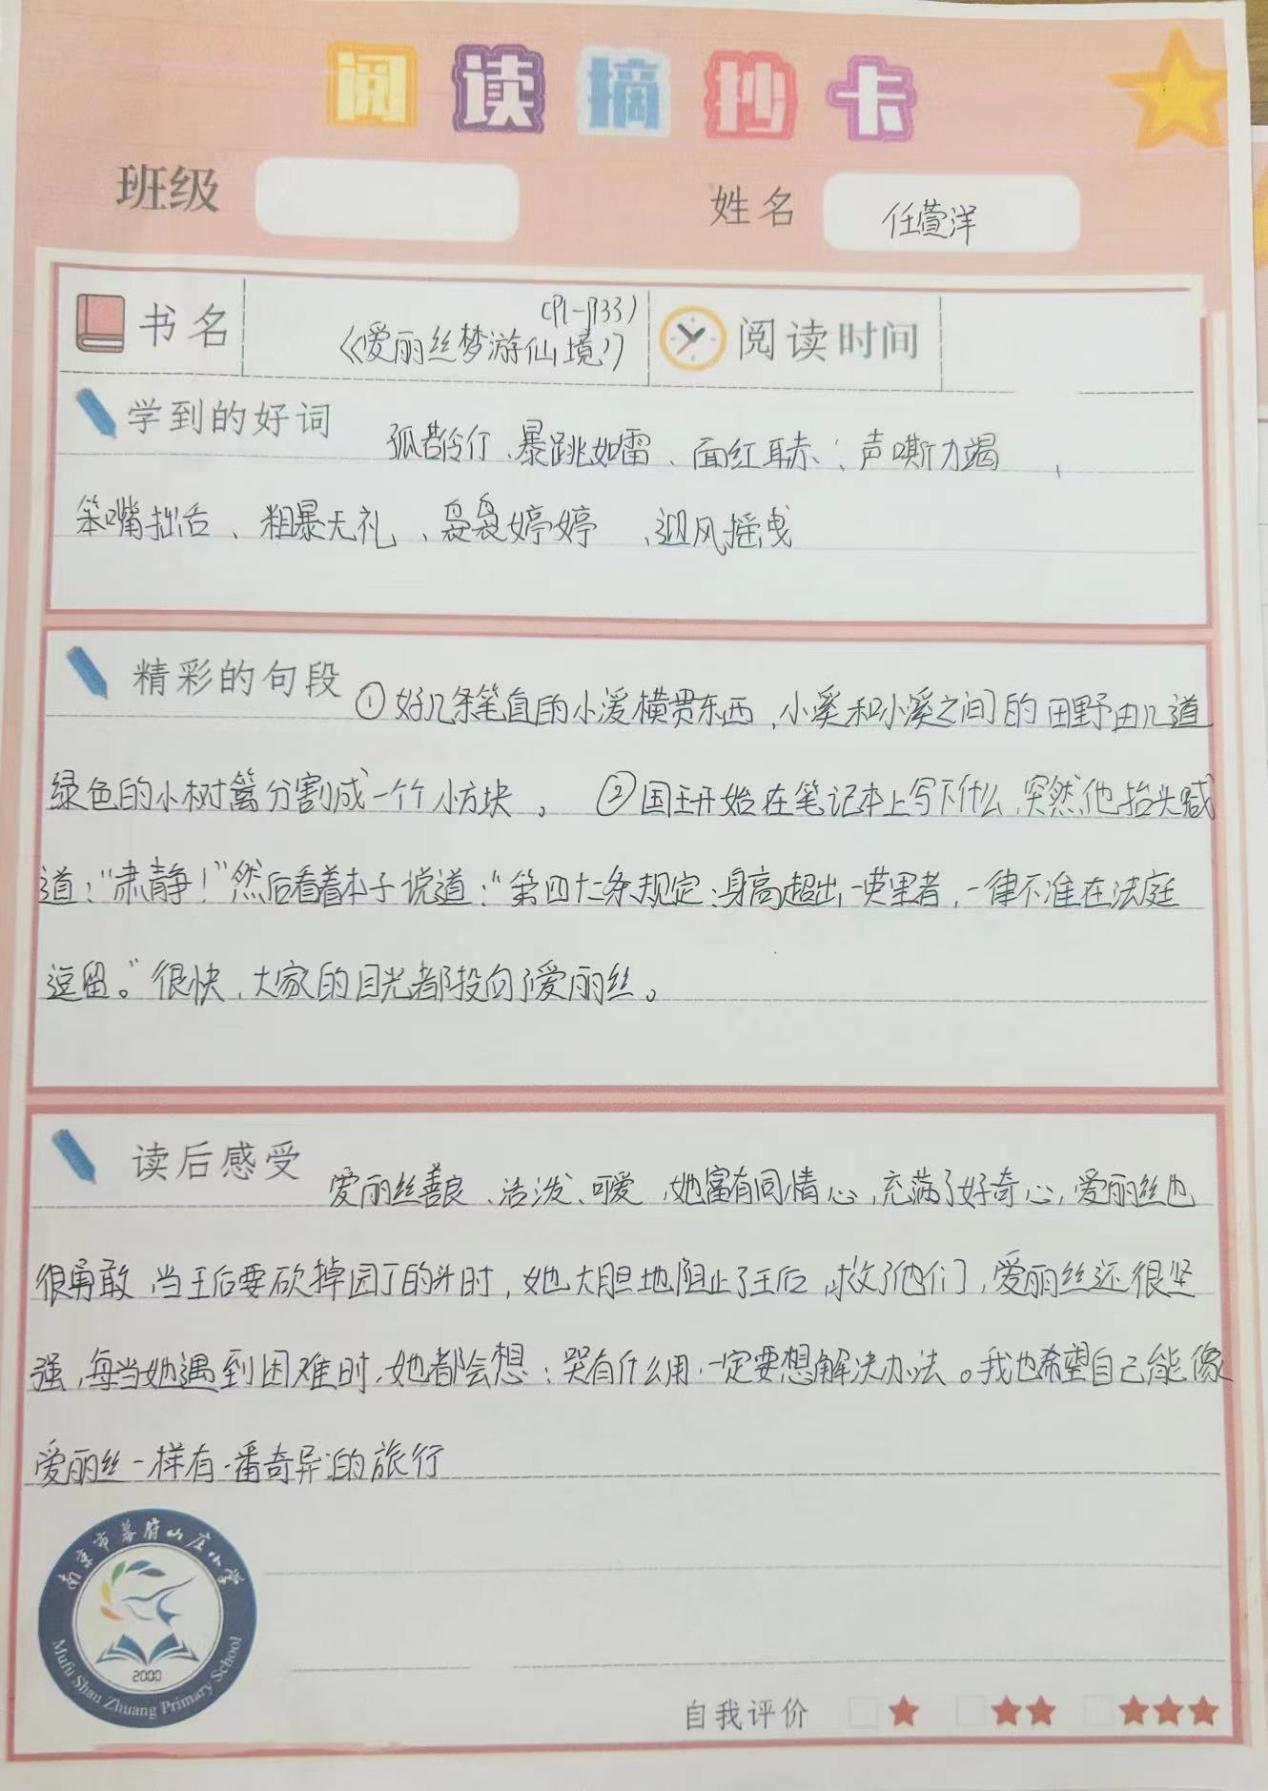 阅读摘抄卡
班级 姓名 任萱洋
(P1-P33)
书名 《爱丽丝梦游仙境》 阅读时间
学到的好词 孤苦伶仃、暴跳如雷、面红耳赤、声嘶力竭、
笨嘴拙舌、粗暴无礼、袅袅婷婷、迎风摇曳
精彩的句段 ①好几条笔直的小溪横贯东西,小溪和小溪之间的田野由几道
绿色的小树篱分割成一个个小方块。 ②国王开始在笔记本上写下什么,突然,他抬头喊
道:“肃静!”然后看着本子说道:“第四十二条规定:身高超出一英里者,一律不准在法庭
逗留。”很快,大家的目光都投向了爱丽丝。
读后感受 爱丽丝善良、活泼、可爱,她富有同情心,充满了好奇心,爱丽丝也
很勇敢,当王后要砍掉园丁的头时,她大胆地阻止了王后,救了他们,爱丽丝还很坚
强,每当她遇到困难时,她都会想:哭有什么用,一定要想解决办法。我也希望自己能像
爱丽丝一样有一番奇异的旅行
南京市幕府山庄小学
2000
Mufu Shan Zhuang Primary School
自我评价 ★ ★★ ★★★